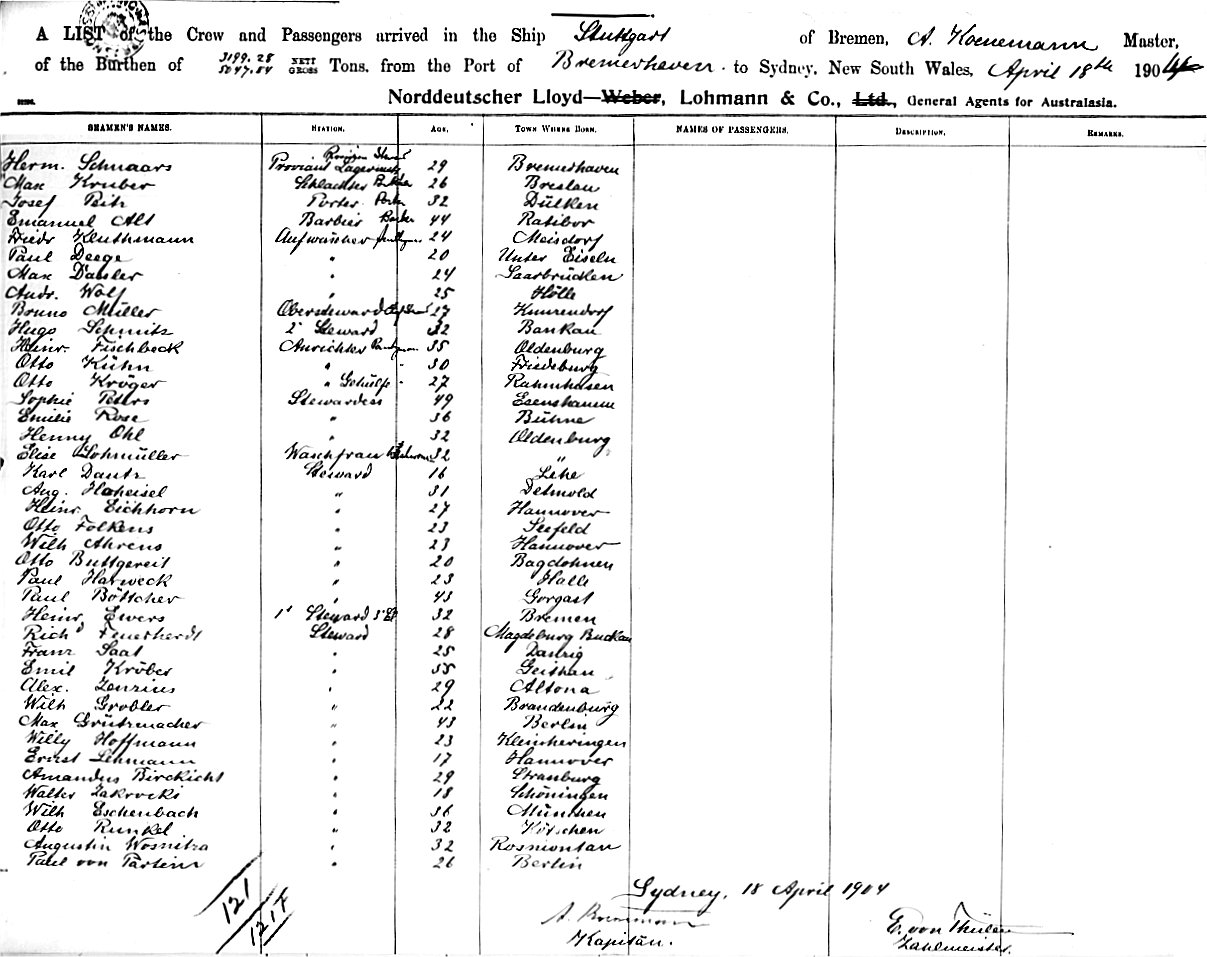 A LIST of the Crew and Passengers arrived in the Ship Stuttgart of Bremen, A. Koenemann Master,
of the Burthen of 3199.28 5047.84 NETT GROSS Tons, from the Port of Bremerhaven to Sydney, New South Wales, April 18th 1904
Norddeutscher Lloyd—Weber, Lohmann & Co., Ltd., General Agents for Australasia.
SEAMEN'S NAMES. STATION. AGE. TOWN WHERE BORN. NAMES OF PASSENGERS. DESCRIPTION. REMARKS.
Herm. Schnaars Proviant 29 Bremerhaven
Max Kruber Schlachter 26 Breslau
Josef Peitz Porter 32 Dülken
Emanuel Alt Barbier Barber 44 Ratibor
Friedr Kluthmann Aufwäscher 24 Meisdorf
Paul Deege " 20 Unter Eiseln
Max Dausler " 24 Saarbrücken
Andr. Wolf " 25 Hölle
Bruno Müller Obersteward 27 Kunzendorf
Hugo Schmitz 2 Steward 32 Bankau
Heinr. Fischbeck Anrichter 35 Oldenburg
Otto Kühn " 30 Friedeburg
Otto Kröger " Gehülfe 27
Sophie Peters Stewardess 49 Esenshamm
Emilie Rose " 36 Bühne
Henny Ohl " 32 Oldenburg
Elise Lohmüller Waschfrau 32 "
Karl Dantz Steward 16 Lehe
Aug. Hoheisel " 31 Detmold
Heinr. Eichhorn " 27 Hannover
Otto Folkens " 23 Seefeld
Wilh Ahrens " 23 Hannover
Otto Buttgereit " 20 Bagdohnen
Paul Harweck " 23 Halle
Paul Böttcher " 43 Gorgast
Heinr. Ewers 1 Steward 32 Bremen
Richd Feuerherdt Steward 28 Magdeburg Buckau
Franz Saat " 25 Danzig
Emil Kröber " 55 Geithan
Alex. Zenzius " 29 Altona
Wilh Grobler " 22 Brandenburg
Max Grützmacher " 43 Berlin
Willy Hoffmann " 23 Kleinheringen
Ernst Lehmann " 17 Hannover
Amandus Birckicht " 29 Strassburg
Walter Zakrocki " 18 Schöningen
Wilh Eschenbach " 36 München
Otto Runkel " 32 Kötschen
Augustin Wosnitza " 32 Rosniontau
Paul von Parseim " 26 Berlin
121
1217
Sydney, 18 April 1904
A. Koenemann
Kapitän.
E. von Thülen
Zahlmeister.